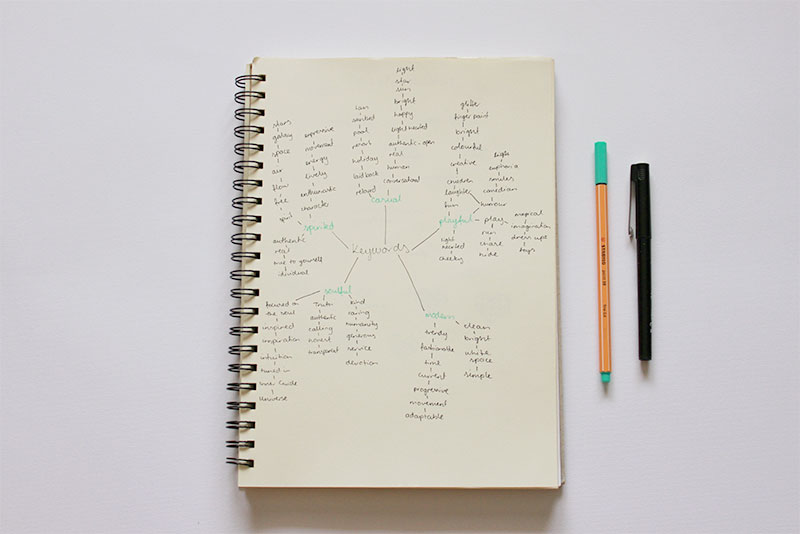 Keywords
casual
conversational
human
real
authentic - open
light hearted
happy
bright
sun
star
light
relaxed
laid back
holiday
pool
tan
playful
fun
laughter
children
creative
colourful
bright
finger paint
humour
comedian
smiles
euphoria
play
run
chase
hide
magical
imagination
dress ups
toys
light
hearted
cheeky
modern
trendy
fashionable
time
current
progressive
movement
adaptable
clean
bright
white
space
simple
soulful
kind
caring
humanity
generous
service
devotion
Truth
authentic
calling
honest
transparent
focused on
the soul
inspired
inspiration
intuition
tuned in
inner guide
Universe
spirited
character
enthusiastic
lively
energy
movement
expressive
spirit
free
flow
air
space
galaxy
stars
authentic
real
true to yourself
STABILO